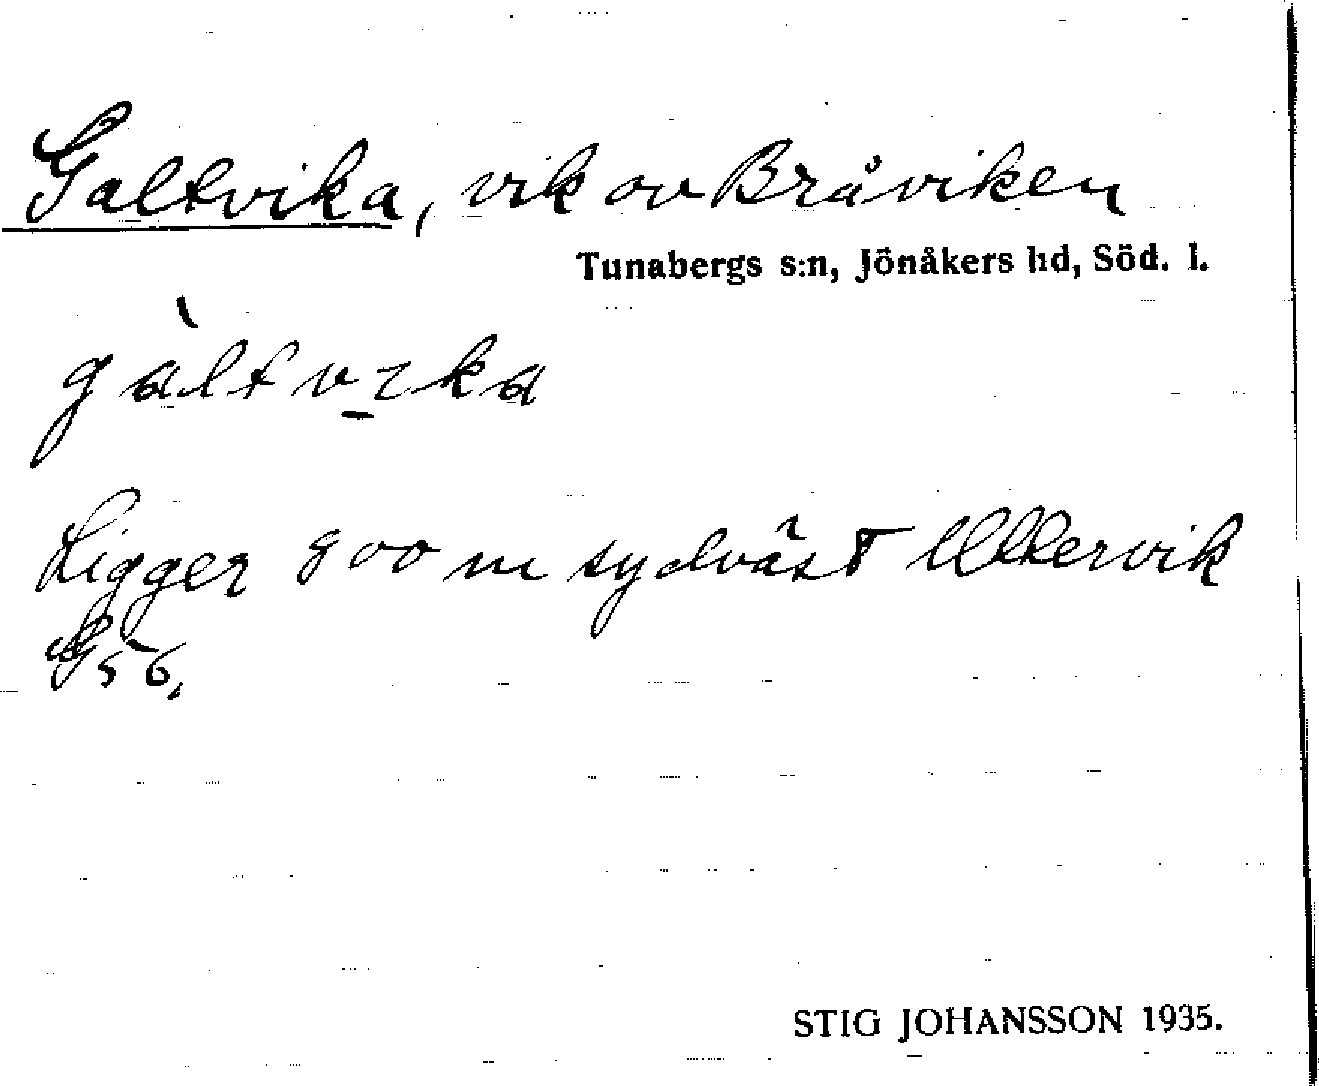 Galtvika, vik av Bråviken
Tunabergs s:n, Jönåkers hd, Söd. l.
gàltvika
Ligger 900 m sydväst Uttervik
G56,
STIG JOHANSSON 1935.